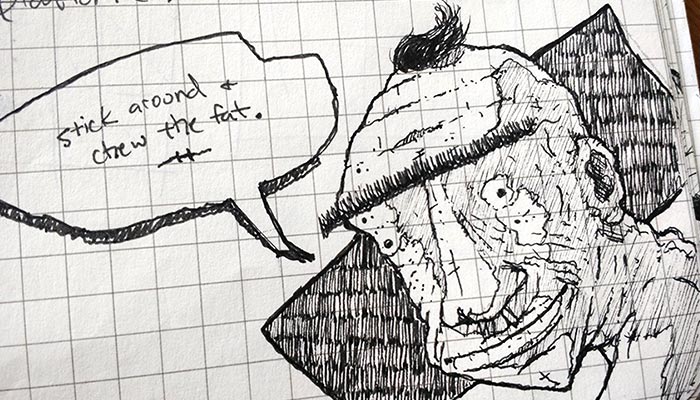 stick around +
chew the fat.